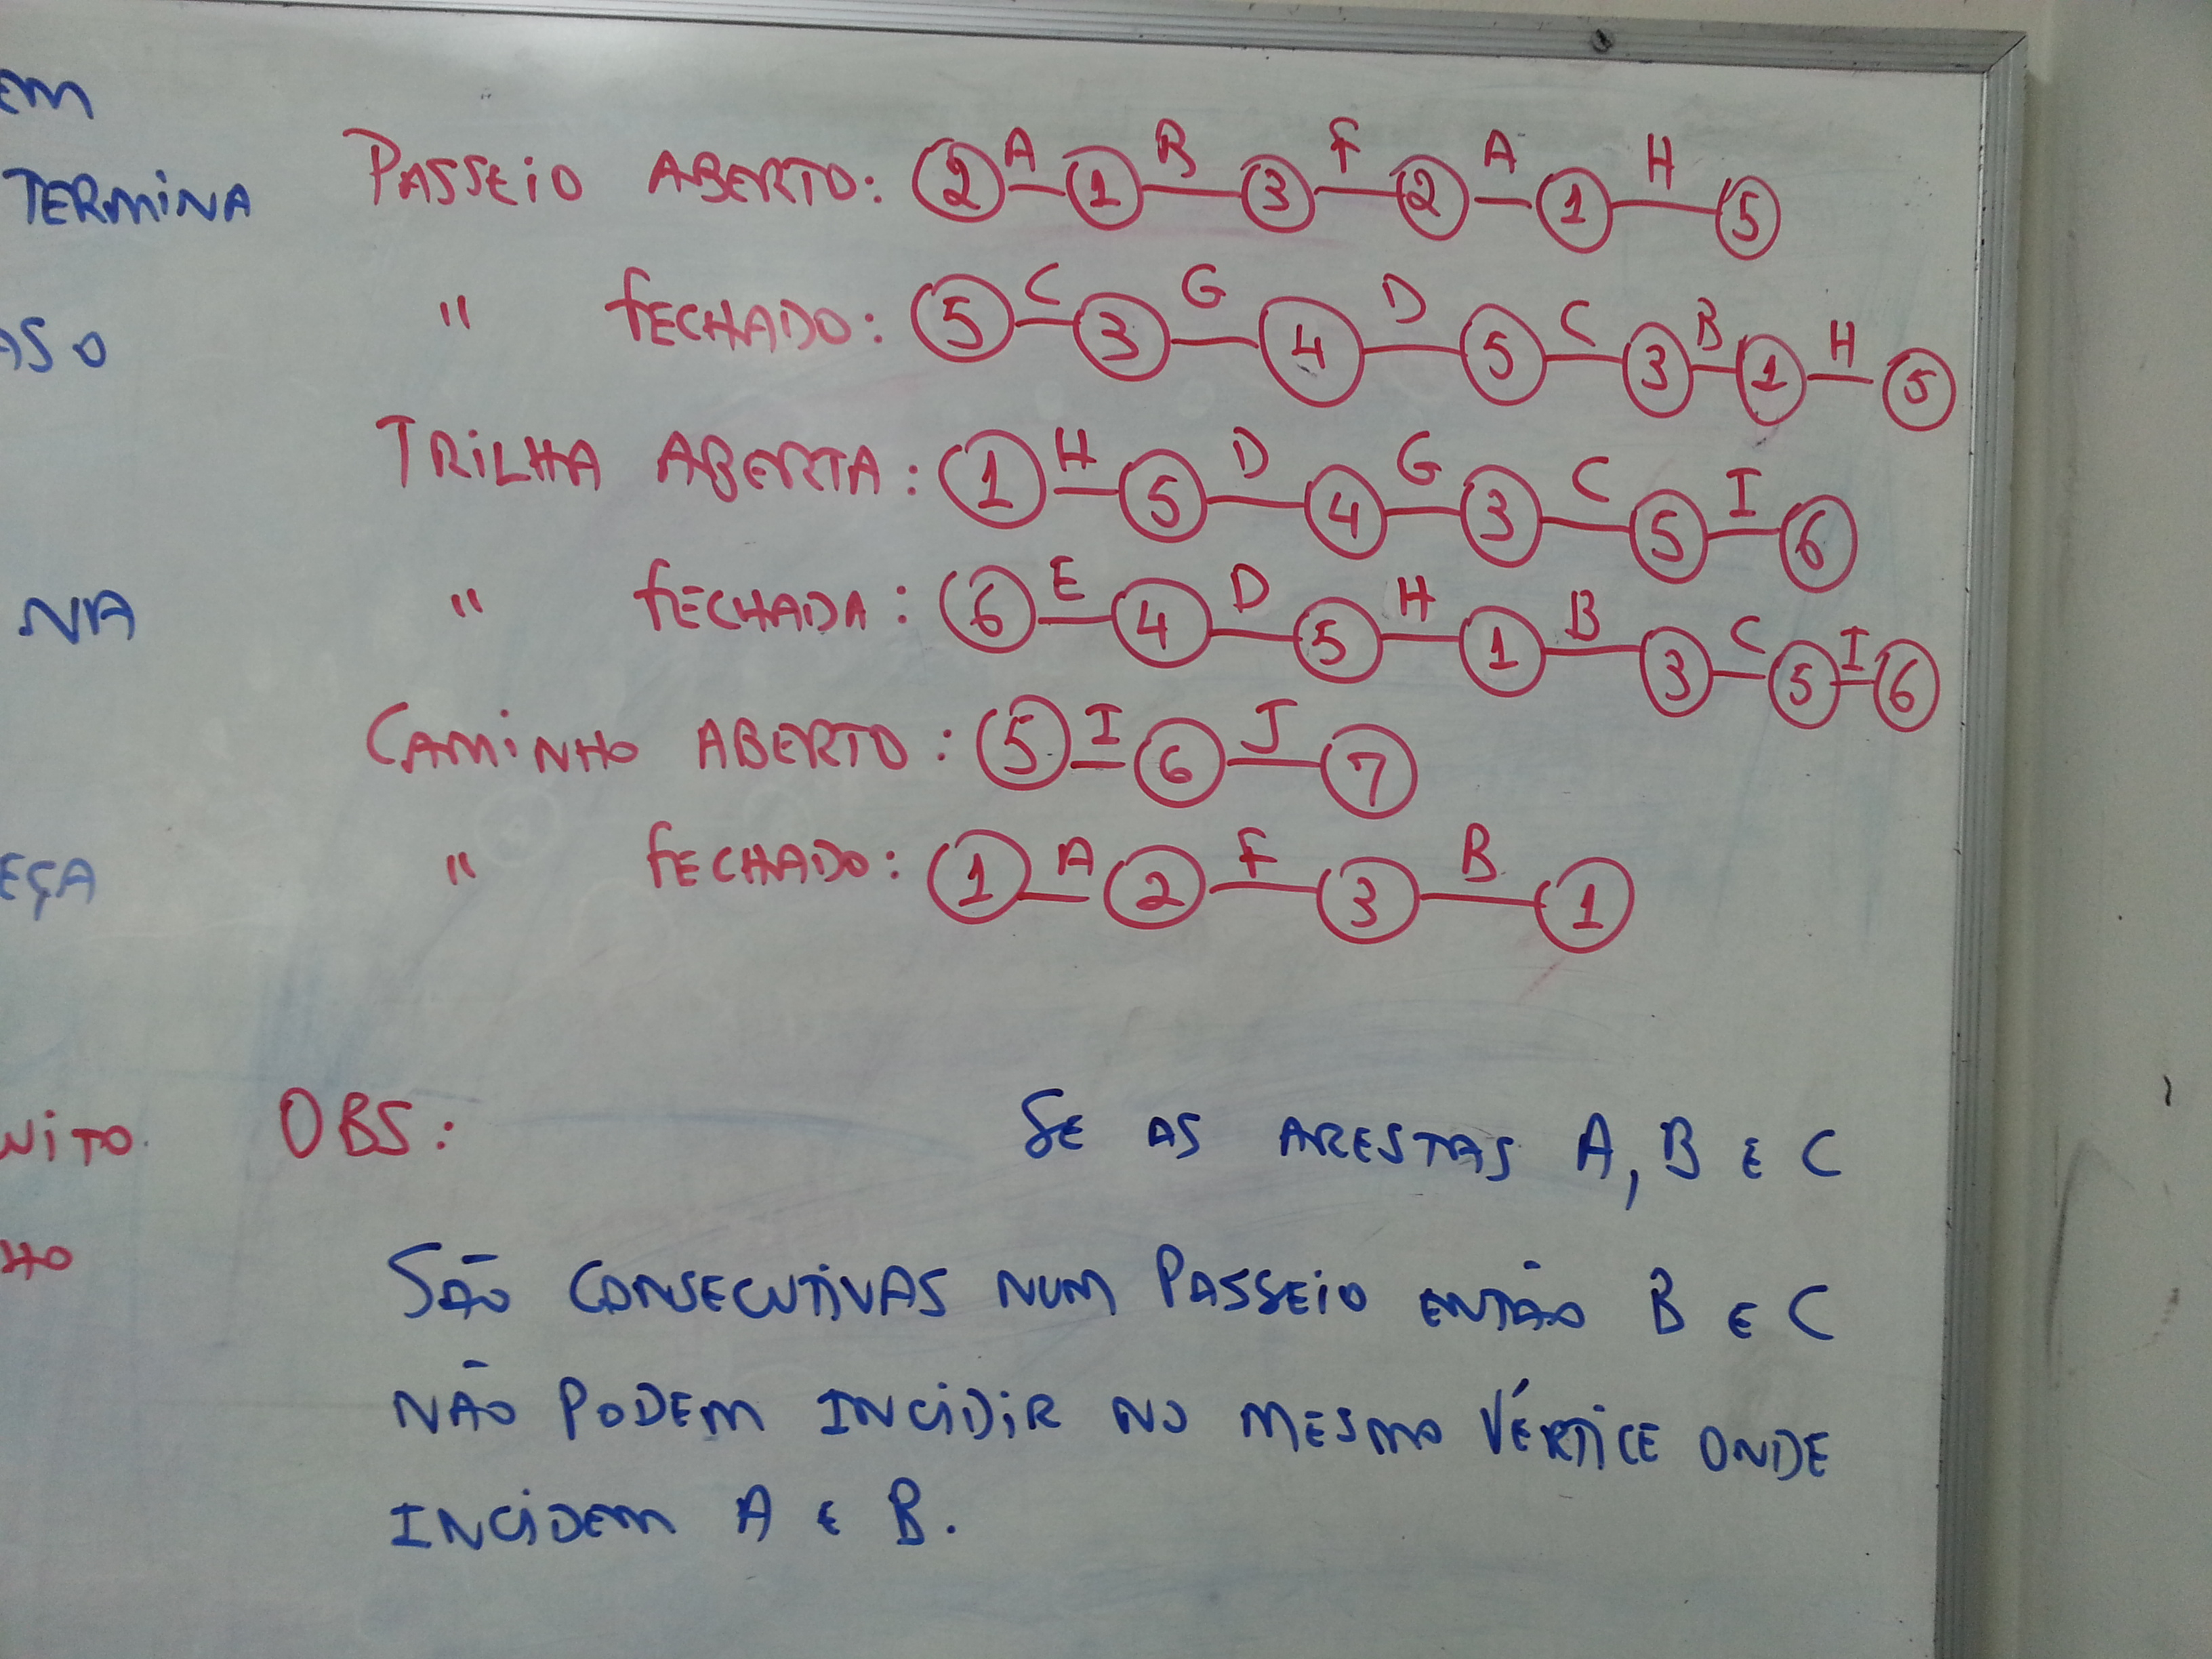 EM
TERMINA
ASO
NA
EÇA
NITO.
HO
PASSEIO ABERTO: 2 A 1 B 3 F 2 A 1 H 5
" FECHADO: 5 C 3 G 4 D 5 C 3 B 1 H 5
TRILHA ABERTA: 1 H 5 D 4 G 3 C 5 I 6
" FECHADA: 6 E 4 D 5 H 1 B 3 C 5 I 6
CAMINHO ABERTO: 5 I 6 J 7
" FECHADO: 1 A 2 F 3 B 1
OBS: SE AS ARESTAS A, B E C
SÃO CONSECUTIVAS NUM PASSEIO ENTÃO B E C
NÃO PODEM INCIDIR NO MESMO VÉRTICE ONDE
INCIDEM A E B.